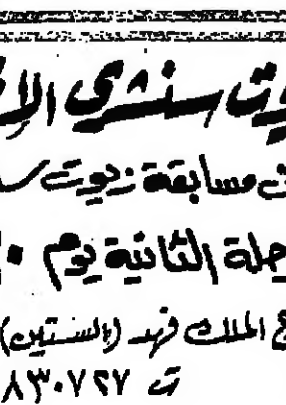 زيوت سنشري الا
مسابقة زيوت س
حلة الثانية يوم ٢٠
الملك فهد (بالستين)
ت ٨٣٠٧٢٧